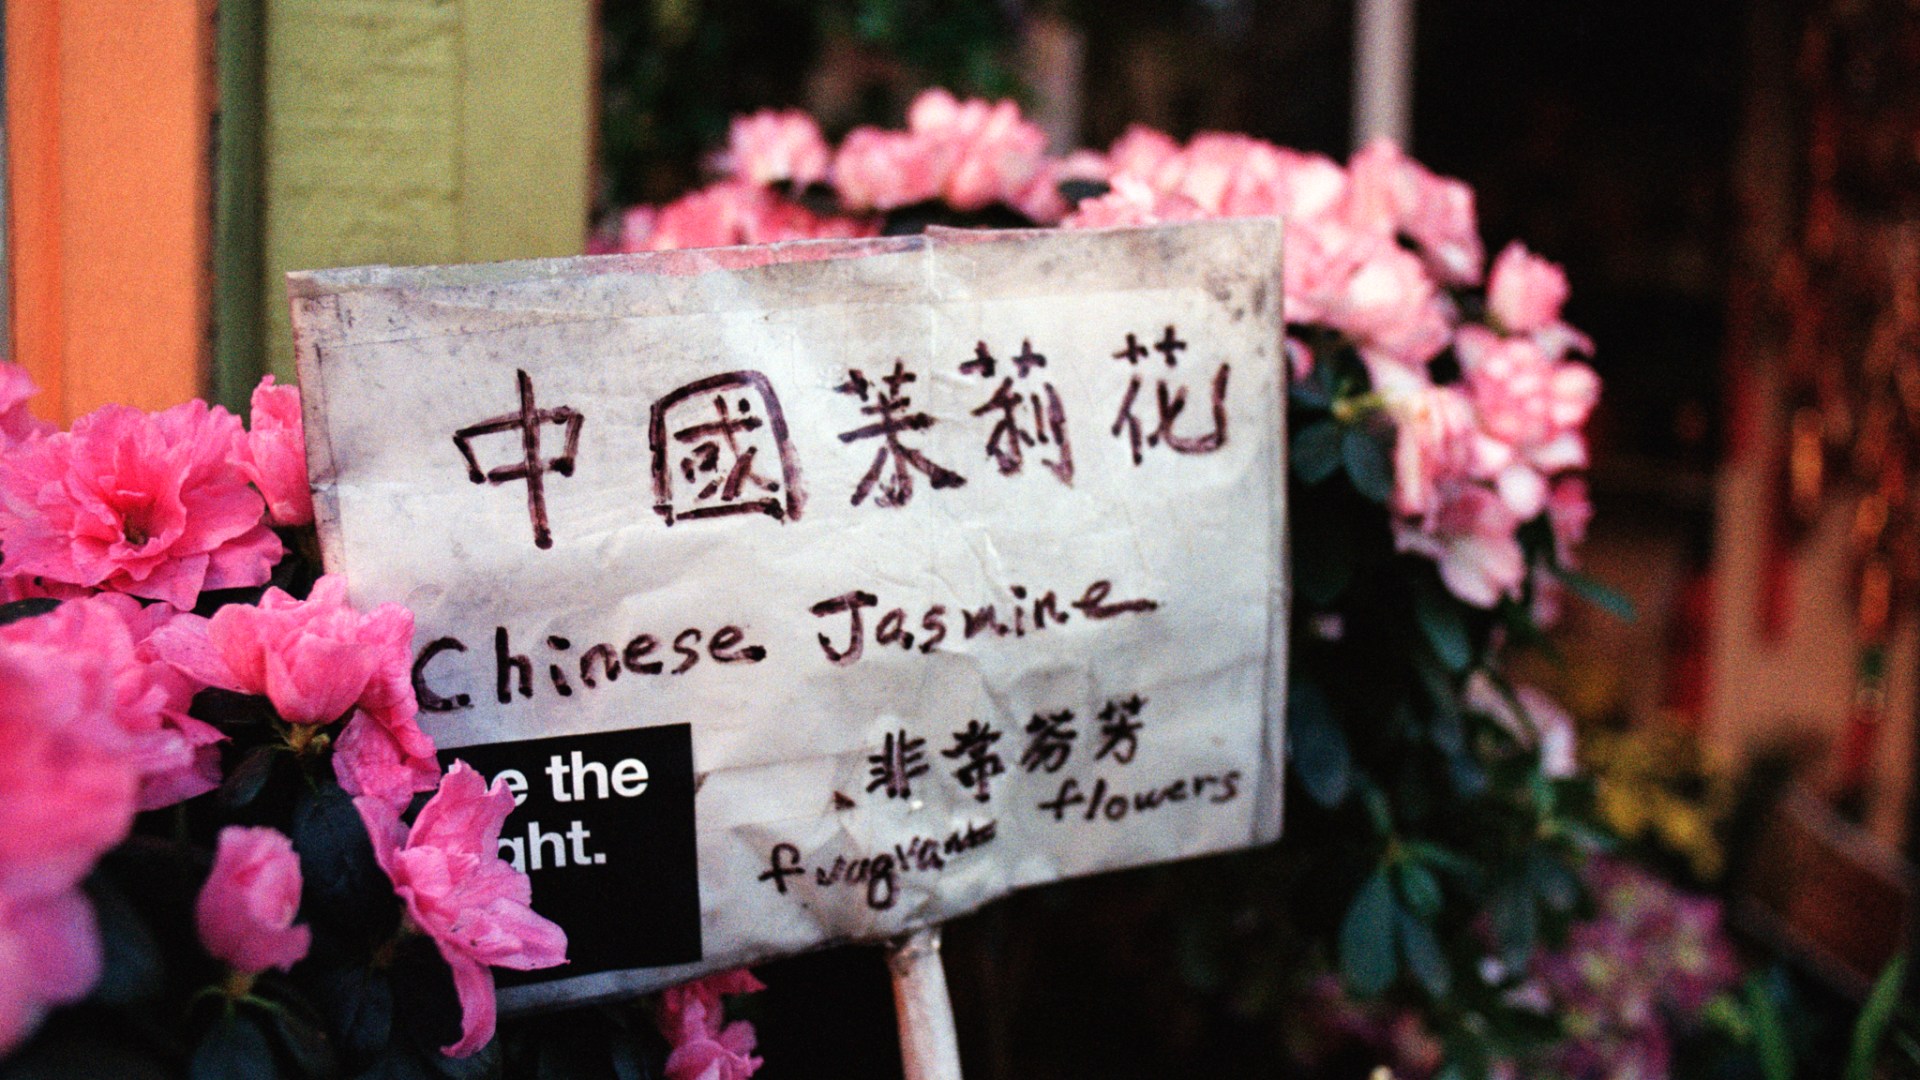 中國茉莉花
Chinese Jasmine
the
非常芬芳
fragrant flowers